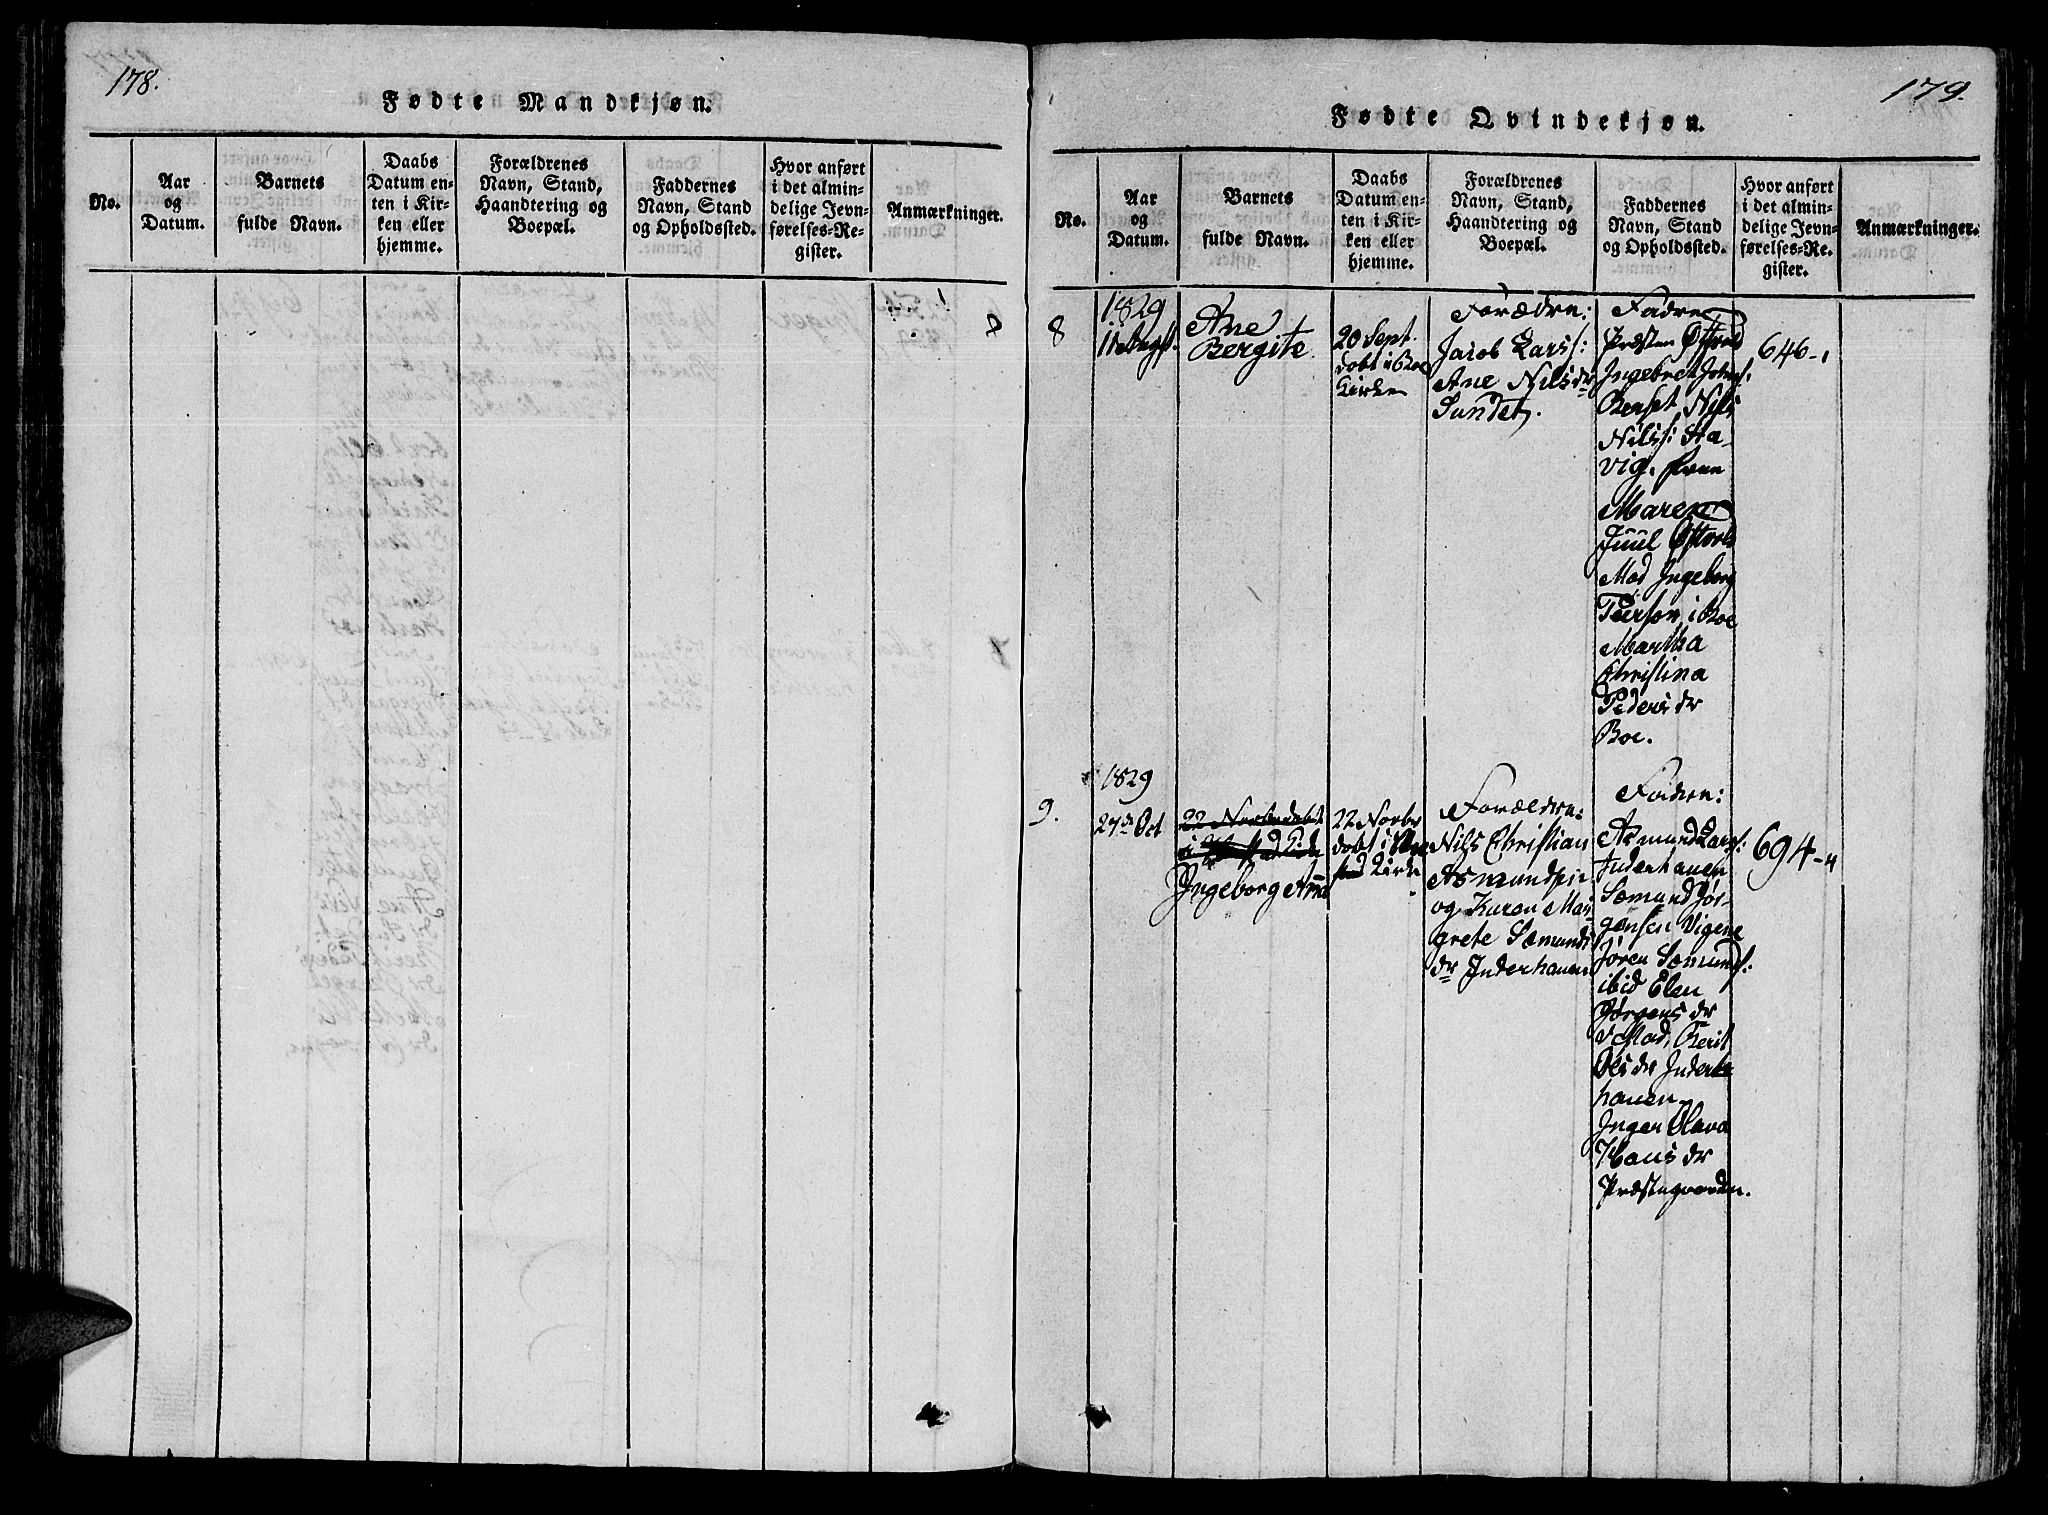 178.
Fødte Mandkjøn.
No.
Aar
og
Datum.
Barnets
fulde Navn.
Daabs
Datum en-
ten i Kir-
ken eller
hjemme.
Forældrenes
Navn, Stand,
Haandtering og
Boepæl.
Faddernes
Navn, Stand
og Opholdssted.
Hvor anført
i det almin-
delige Jevn-
førelses-Re-
gister.
Anmærkninger.
179.
Fødte Qvindekjøn.
No.
Aar
og
Datum.
Barnets
fulde Navn.
Daabs
Datum en-
ten i Kir-
ken eller
hjemme.
Forældrenes
Navn, Stand,
Haandtering og
Boepæl.
Faddernes
Navn, Stand
og Opholdssted.
Hvor anført
i det almin-
delige Jevn-
førelses-Re-
gister.
Anmærkninger.
8
1829
11 Augs.
Ane
Bergite
20 Sept.
døbt i Boe
Kirke
Forædre:
Jacob Lars:
Ane Nilsdr
Sundet.
Fadre
Præsten
Ingebret Johs:
Berset, Nils
Nils: Sta-
vig. Frue
Maren
Juul
Mad Ingeborg
i Boe
Martha
Christina
Peders dr
Boe.
646-1
9.
1829
27de Oct
22 Novbr døbt
Ingeborg Anna
22 Novbr
døbt i
Kirke
Forældre:
Nils Christian
Asmundsen
og Karen Mar
grete Sæmunds
dr Inderhaven
Faddere:
Asmund Lars:
Inderhaven
Sæmund Jør-
gensen Vigene
Jøren Sæmunds:
ibid Elen
Jørgens dr
Mad, Berit
Ols dr Inder
haven
Inger Olava
Hans dr
Præstegaarden.
694-4